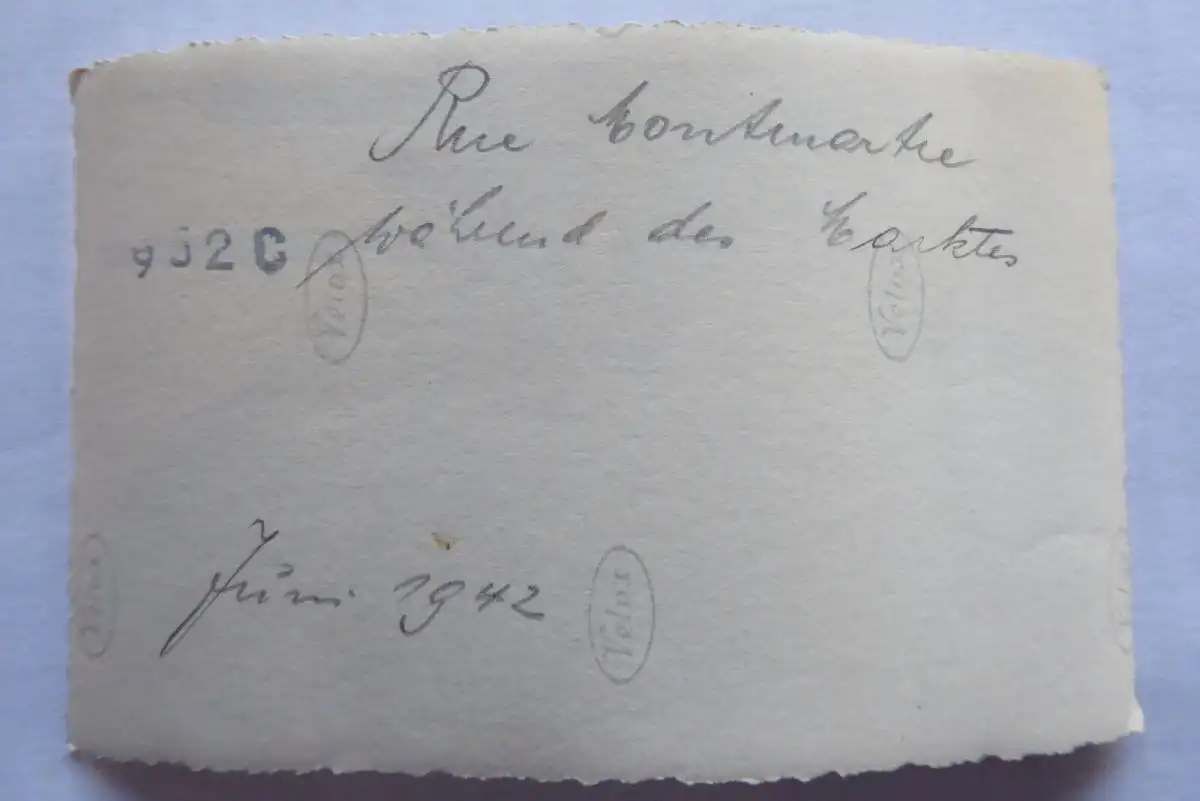 Rue Montmartre
während des Marktes
Velox
Velox
Juni 1942
Velox
Velox